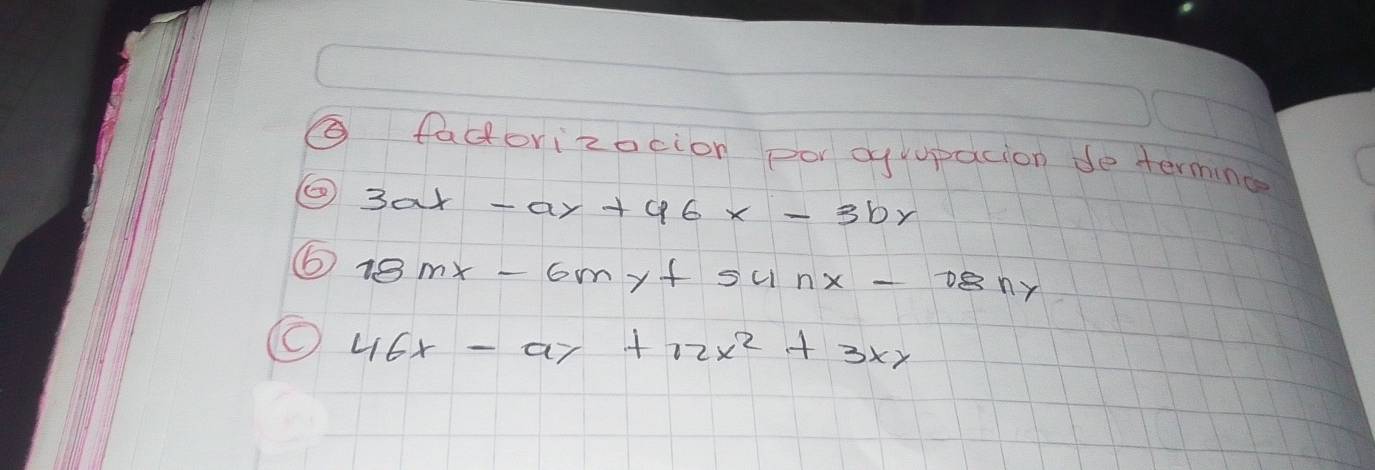 ③ factorizacion por agrupacion de termino
ⓐ 3ax - ay + 96x - 3by
ⓑ 18mx - 6my + 54nx - 18ny
ⓒ 46x - ay + 12x² + 3xy